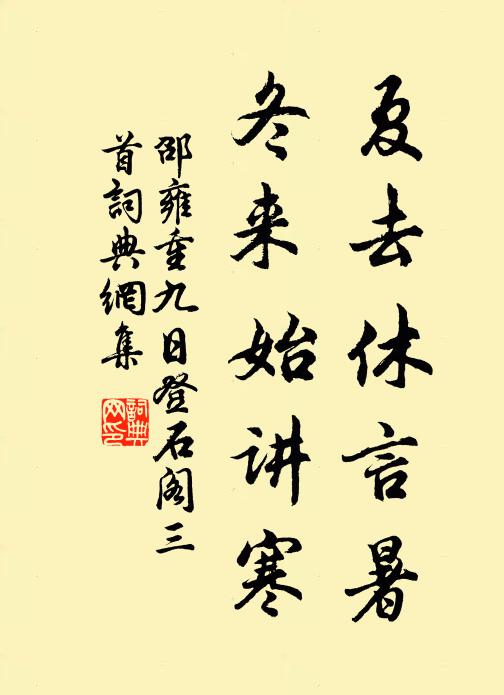 夏去休言暑
冬来始讲寒
邵雍重九日登石阁三
首詞典網集
詞典
网印